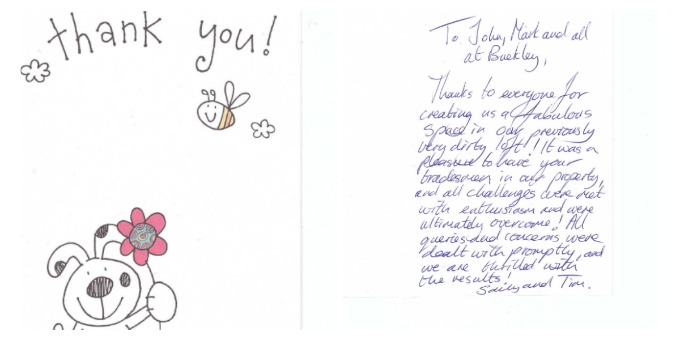 thank you!
To John, Mark and all
at Buckley,
Thanks to everyone for
creating us a fabulous
space in our previously
very dirty loft! It was a
pleasure to have your
tradesmen in our property,
and all challenges were met
with enthusiasm and were
ultimately overcome! All
queries and concerns were
dealt with promptly, and
we are thrilled with
the results!
and Tim.